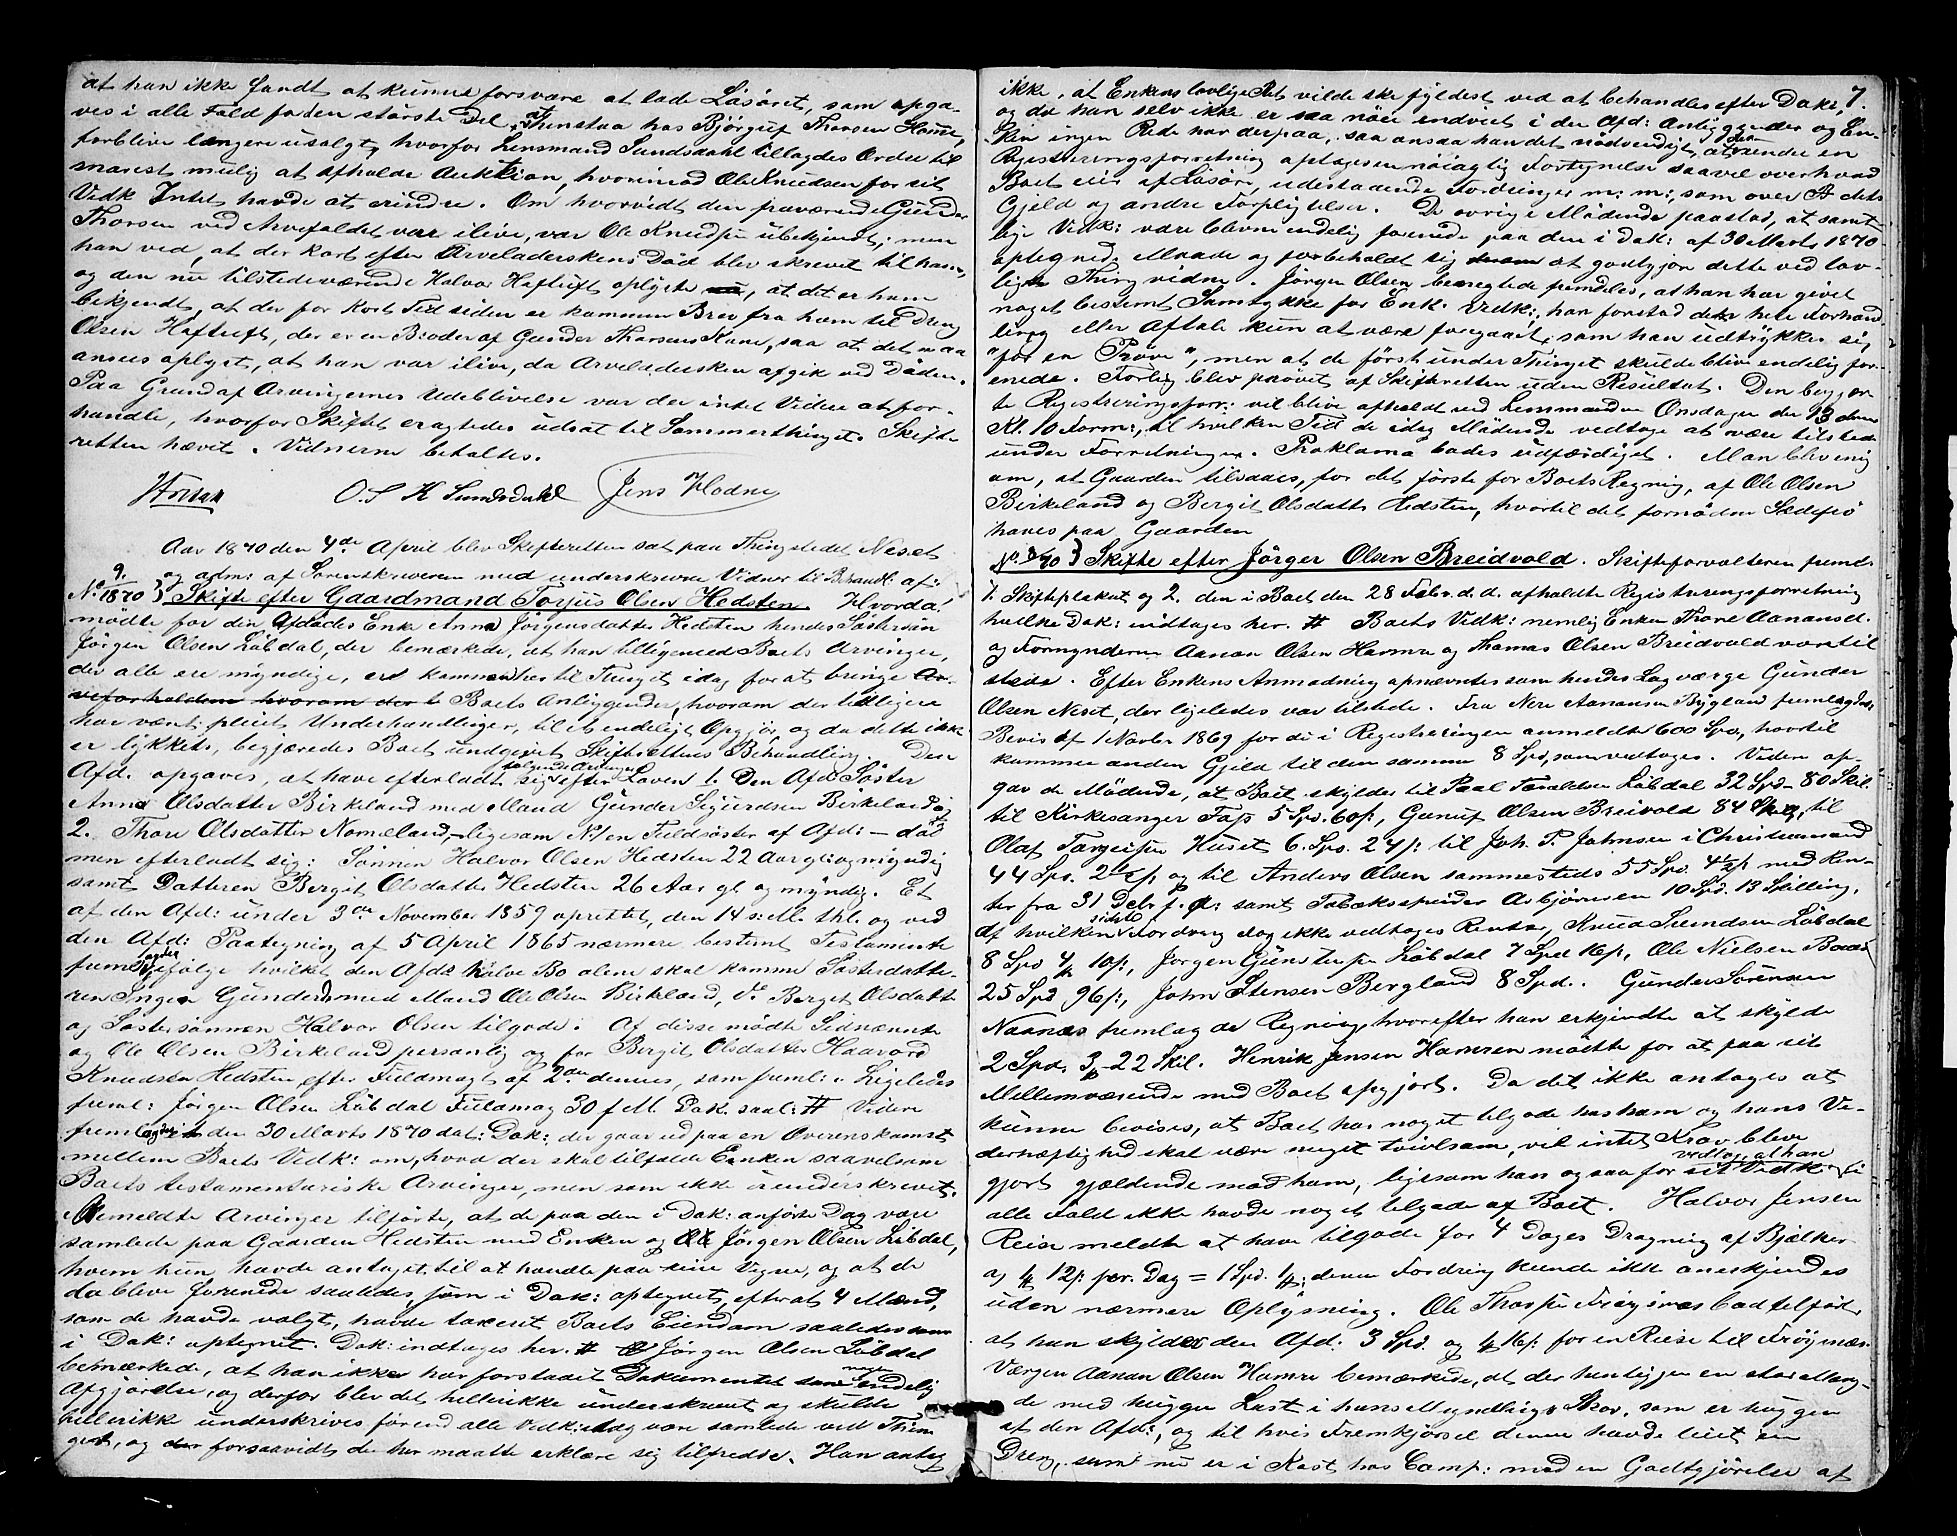 at han ikke fandt at kunne forsvare at lade Lösöret, som opga-
ves i alle Fald for den störste Del at henstaa hos Björguf Thorsen Homme,
forblive længere usolgt, hvorfor Lensmand Sundsdahl tillagdes Ordre til
snarest mulig at afholde Auktion, hvorimod Ole Knudsen for sit
Vedk Intet havde at erindre. Om hvorvidt den fraværende Gunder
Thorsen ved Arvefaldet var ilive, var Ole Knudsen ubekjendt; men
han ved, at der kort efter Arveladerskens Död blev skrevet til ham,
og den nu tilstedeværende Halvor Haftuft oplyste, at det er ham
bekjendt, at der for kort Tid siden er kommen Brev fra ham til Dreng
Olsen Haftuft, der er en Broder af Gunder Thorsens Kone, saa at det maa
ansees oplyst, at han var ilive, da Arveladersken afgik ved Döden.
Paa Grund af Arvingernes Udeblivelse var der intet Videre at for-
handle, hvorfor Skiftet eragtedes udsat til Sommerthinget. Skifte-
retten hævet. Vidnerne betaltes.
O. S. K Sundsdahl Jens Hodne
Aar 1870 den 4de April blev Skifteretten sat paa Thingstedet Neset
og adm: af Sorenskriveren med underskrevne Vidner til Behandl. af:
No 9. 1870 } Skifte efter Gaardmand Torjus Olsen Hedsten. Hvorda!
mödte for den Afdödes Enke Anna Jörgensdatter Hedsten hendes Söstersön
Jörgen Olsen Löbdal, der bemærkede, at han tilligemed Boets Arvinger,
der alle ere myndige, er kommen her til Thinget idag for at bringe Ar-
veforholdene hvorom der t Boets Anliggender, hvorom der tidligere
har været pleiet Underhandlinger, til et endeligt Opgjör, og da dette ikke
er lykkets, begjæredes Boet undergivet Skifterettens Behandling. Den
Afd. opgaves, at have efterladt sig efter Loven fölgende Arvinger 1. Den Afd: Söster
Anna Olsdatter Birkeland med Mand Gunder Sigurdsen Birkeland og
2. Thore Olsdatter Nomeland, ligesom No 1 en Fuldsöster af Afd: – död
men efterladt sig: Sönnen Halvor Olsen Hedsten 22 Aar gl: og myndig
samt Datteren Bergit Olsdatter Hedsten 26 Aar gl. og myndig. Et
af den Afd: under 3die November 1859 oprettet, den 14 s: M. thl. og ved
den Afd: Paategning af 5 April 1865 nærmere bestemt Testamente
fremlagdes ifölge hvilket den Afds halve Bo alene skal komme Sösterdatte-
ren Inger Gunders med Mand Ole Olsen Birkeland, Do Berget Olsdatter
og Söstersönnen Halvor Olsen tilgode. Af disse mödte Sidnævnte
og Ole Olsen Birkeland personlig og for Bergit Olsdatter Haavord
Knudsen Hedsten efter Fuldmagt af 2den dennes, som freml: Ligeledes
freml: Jörgen Olsen Löbdal Fuldmag 30 f. M. Dok. saal: # Videre
fremlagdes et den 30 Marts 1870 dat: Dok: der gaar ud paa en Overenskomst
mellem Boets Vedk: om, hvad der skal tilfalde Enken saavelsom
Boets testamentariske Arvinger, men som ikke er underskrevet.
Anmeldte Arvinger tilförte, at de paa den i Dok: anförte Dag vare
samlede paa Gaarden Hedsten med Enken og Jörgen Olsen Löbdal,
hvem hun havde antaget til at handle paa sine Vegne, og at de
da bleve forenede saaledes, som i Dok: optegnet, efterat 4 Mænd,
som de havde valgt, havde taxeret Boets Eiendom saaledes som
i Dok: optegnet. Dok: indtages her. # Jörgen Olsen Löbdal
bemærkede, at han ikke har forstaaet Dokumentet som nogen endelig
Afgjörelse, og derfor blev det hellerikke underskrevet og skulde
hellerikke underskrives förend alle Vedk: idag vare samlede ved Thin
get, og forsaavidt de her maatte erklære sig tilfredse. Han antog
7.
ikke, at Enkens lovlige Ret vilde ske fyldest ved at behandles efter Dok:,
og da han selv ikke er saa nöie indviet i den Afd: Anliggender og En-
ken ingen Rede har derpaa, saa ansaa han det nödvendigt, at der under en
Registreringsforretning optages en nöiagtig Fortegnelse saavel over hvad
Boet eier af Lösöre, udestaaende Fordringer m: m:, som over dets
Gjeld og andre Forpligtelser. De övrige Mödende paastod, at samt-
lige Vedk: vare blevne endelig forenede paa den i Dok: af 30 Marts 1870
optegnede Maade og forbeholdt sig at godtgjöre dette ved lov-
lige Thingsvidne. Jörgen Olsen benegtede fremdeles, at han har givet
noget bestemt Samtykke for Enk. Vedk:, han forstod den hele Forhand
ling eller Aftale kun at være foregaaet, som han udtrykker sig
"for en Pröve", men at de först under Thinget skulde blive endelig for-
enede. Forlig blev prövet af Skifteretten uden Resultat. Den begjær-
te Registreringsforr: vil blive afholdt ved Lensmanden Onsdagen den 13 dens
Kl. 10 Form:, til hvilken Tid de idag Mödende vedtoge at være tilstede
under Forretningen. Proklama bades udfærdiget. Man blev enig
om, at Gaarden tilsaaes, for det förste for Boets Regning, af Ole Olsen
Birkeland og Bergit Olsdatter Hedsten, hvortil det fornödne Sædefrö
haves paa Gaarden
No. 3/70 } Skifte efter Jörger Olsen Breidvold. Skifteforvalteren freml:
1. Skifteplakat og 2. den i Boet den 28 Febr. d. d. afholdte Registreringsforretning
hvilke Dok: indtages her. # Boets Vedk: nemlig Enken Thore Aanonsd.
og Formynderne Aanon Olsen Hamre og Thomas Olsen Breidvold var til
stede. Efter Enkens Anmodning opnævntes som hendes Lagværge Gunder
Olsen Neset, der ligeledes var tilstede. Fra Nere Aanonsen Bygland fremlagdes
Bevis af 1 Novbr 1869 for de i Registreringen anmeldte 600 Spd, hvortil
kommer anden Gjeld til den samme 8 Spd, som vedtages. Videre op-
gav de Mödende, at Boet skylder til Paal Taraldsen Löbdal 32 Spd – 80 Skil.
til Kirkesanger Fass 5 Spd. 60 s:, Gunuf Olsen Breivold 84 Spd, til
Olaf Torgeisen Huset 6. Spd. 24 s: til Joh. P. Johnsen i Christianssand
44 Spd. 2 s: og til Anders Olsen sammesteds 55 Spd. 4 s: med Ren-
ter fra 31 Debr f. A: samt Tobaksspinder Asbjörnsen 10 Spd. 13 Skilling,
af hvilken sidste Fordring dog ikke vedtages Renter, Knud Svendsen Löbdal
8 Spd 10 s:, Jörgen Gunstensen Löbdal 7 Spd 16 s:, Ole Nielsen
25 Spd 96 s:, John Stensen Bergland 8 Spd. Gunder Sörensen
Naanes fremlagde Regning, hvorefter han erkjendte at skylde
2 Spd. 3 – 22 Skil. Henrik Jensen Hamren mötte for at paa sit
Mellemværende med Boet opgjort. Da det ikke antages at
kunne bevises, at Boet har noget tilgode hos ham og hans Ve-
derhæftighed skal være meget tvivlsom, vil intet Krav blive
gjort gjældende mod ham, ligesom han ogsaa for sit Vedk: vedtog, at han i
alle Fald ikke havde noget tilgode af Boet. Halvor Jensen
Reise meldte at have tilgode for 4 Dages Dragning af Bjælker
a 12 s: pr. Dag = 1 Spd. denne Fordring kunde ikke anerkjendes
uden nærmere Oplysning. Ole Thorsen Fröisnes bad tilfört
at han skylder den Afd: 3 Spd. og 16 s: for en Reise til Fröisnes.
Værgen Aanon Olsen Hamre bemærkede, at der henligger en stor Mæng-
de med hugget Last i hans Myndlings Skov, som er huggen
af den Afd:, og til hvis Fremkjörsel denne havde leiet en
Dreng, som nu er i Kost hos Comp: med en Godtgjörelse af